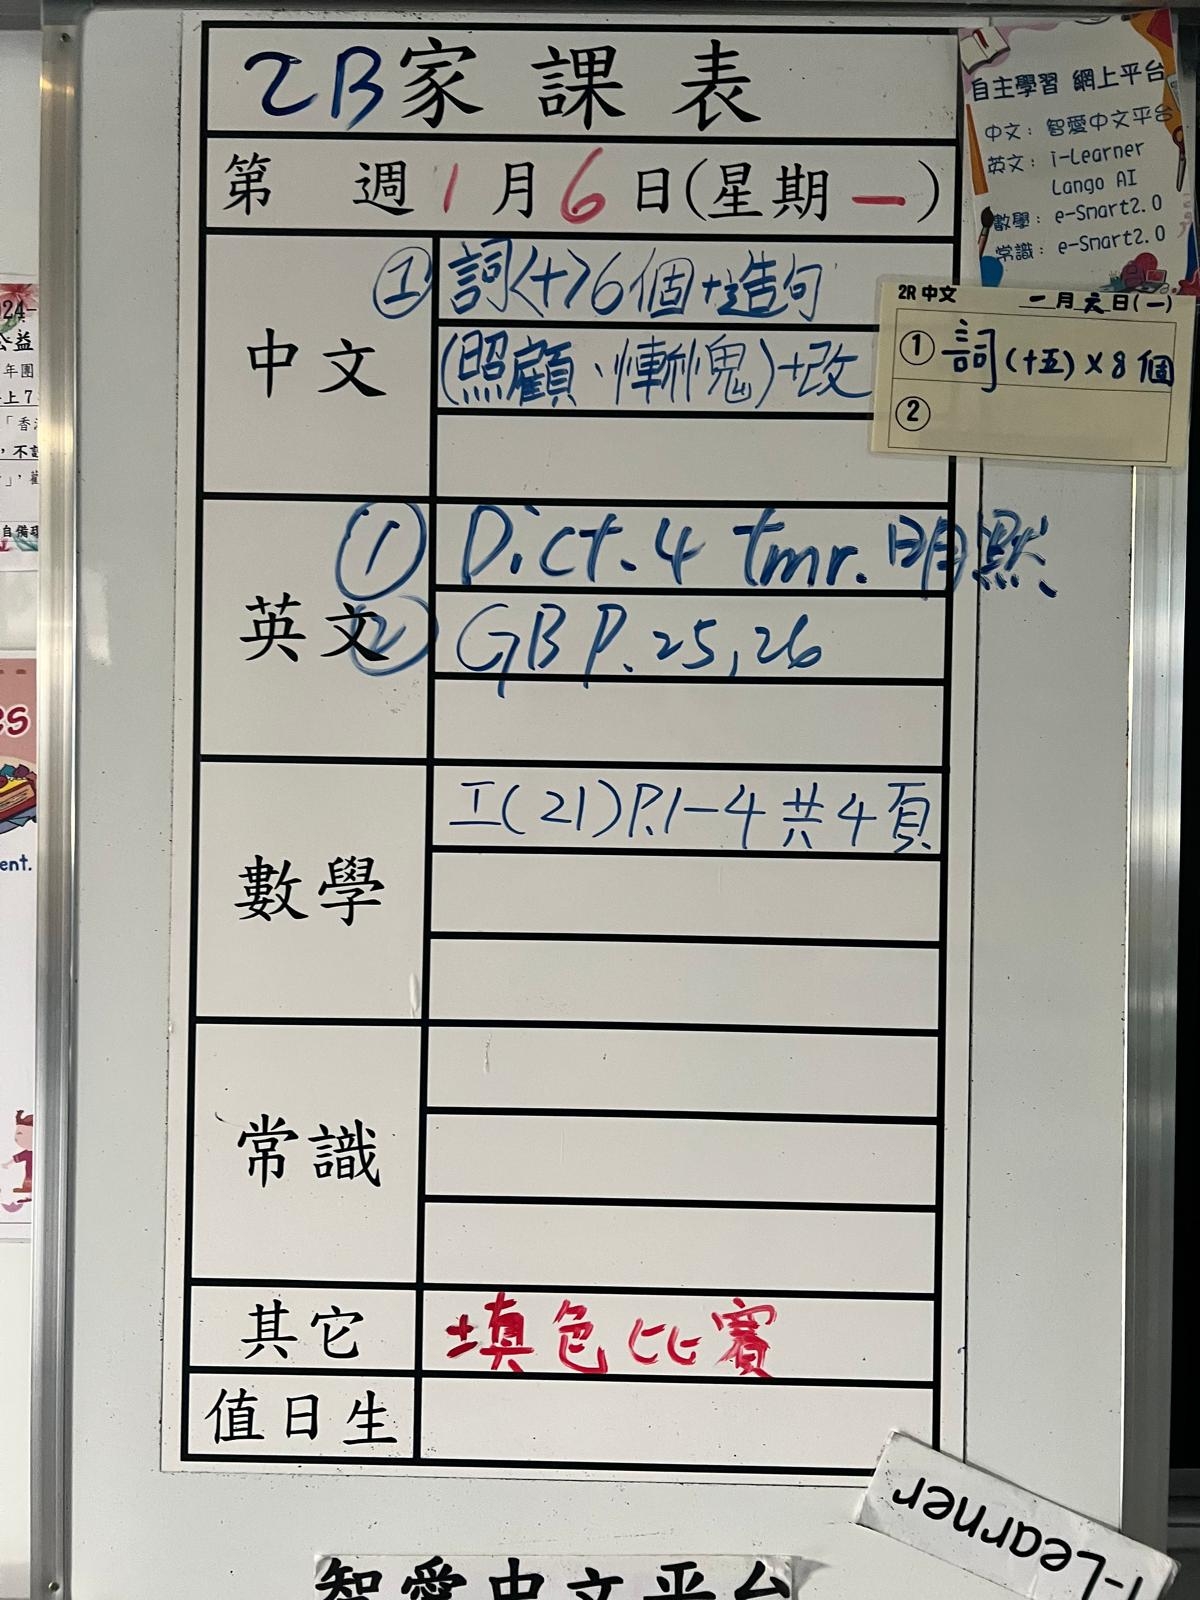 2B家課表
第 週1月6日(星期一)
中文
①詞<十>6個+造句
(照顧、慚愧)+改
英文
① Dict. 4 tmr. 明默
② GB P. 25, 26
數學
工(21)P.1-4共4頁
常識
其它
填色比賽
值日生
自主學習 網上平台
中文: 智愛中文平台
英文: i-Learner
Lango AI
數學: e-Smart2.0
常識: e-Smart2.0
2R 中文 一月六日(一)
① 詞(十五)×8個
②
i-Learner
智愛中文平台
024-
公益
年團
上7
「香
,不
自備
es
ent.